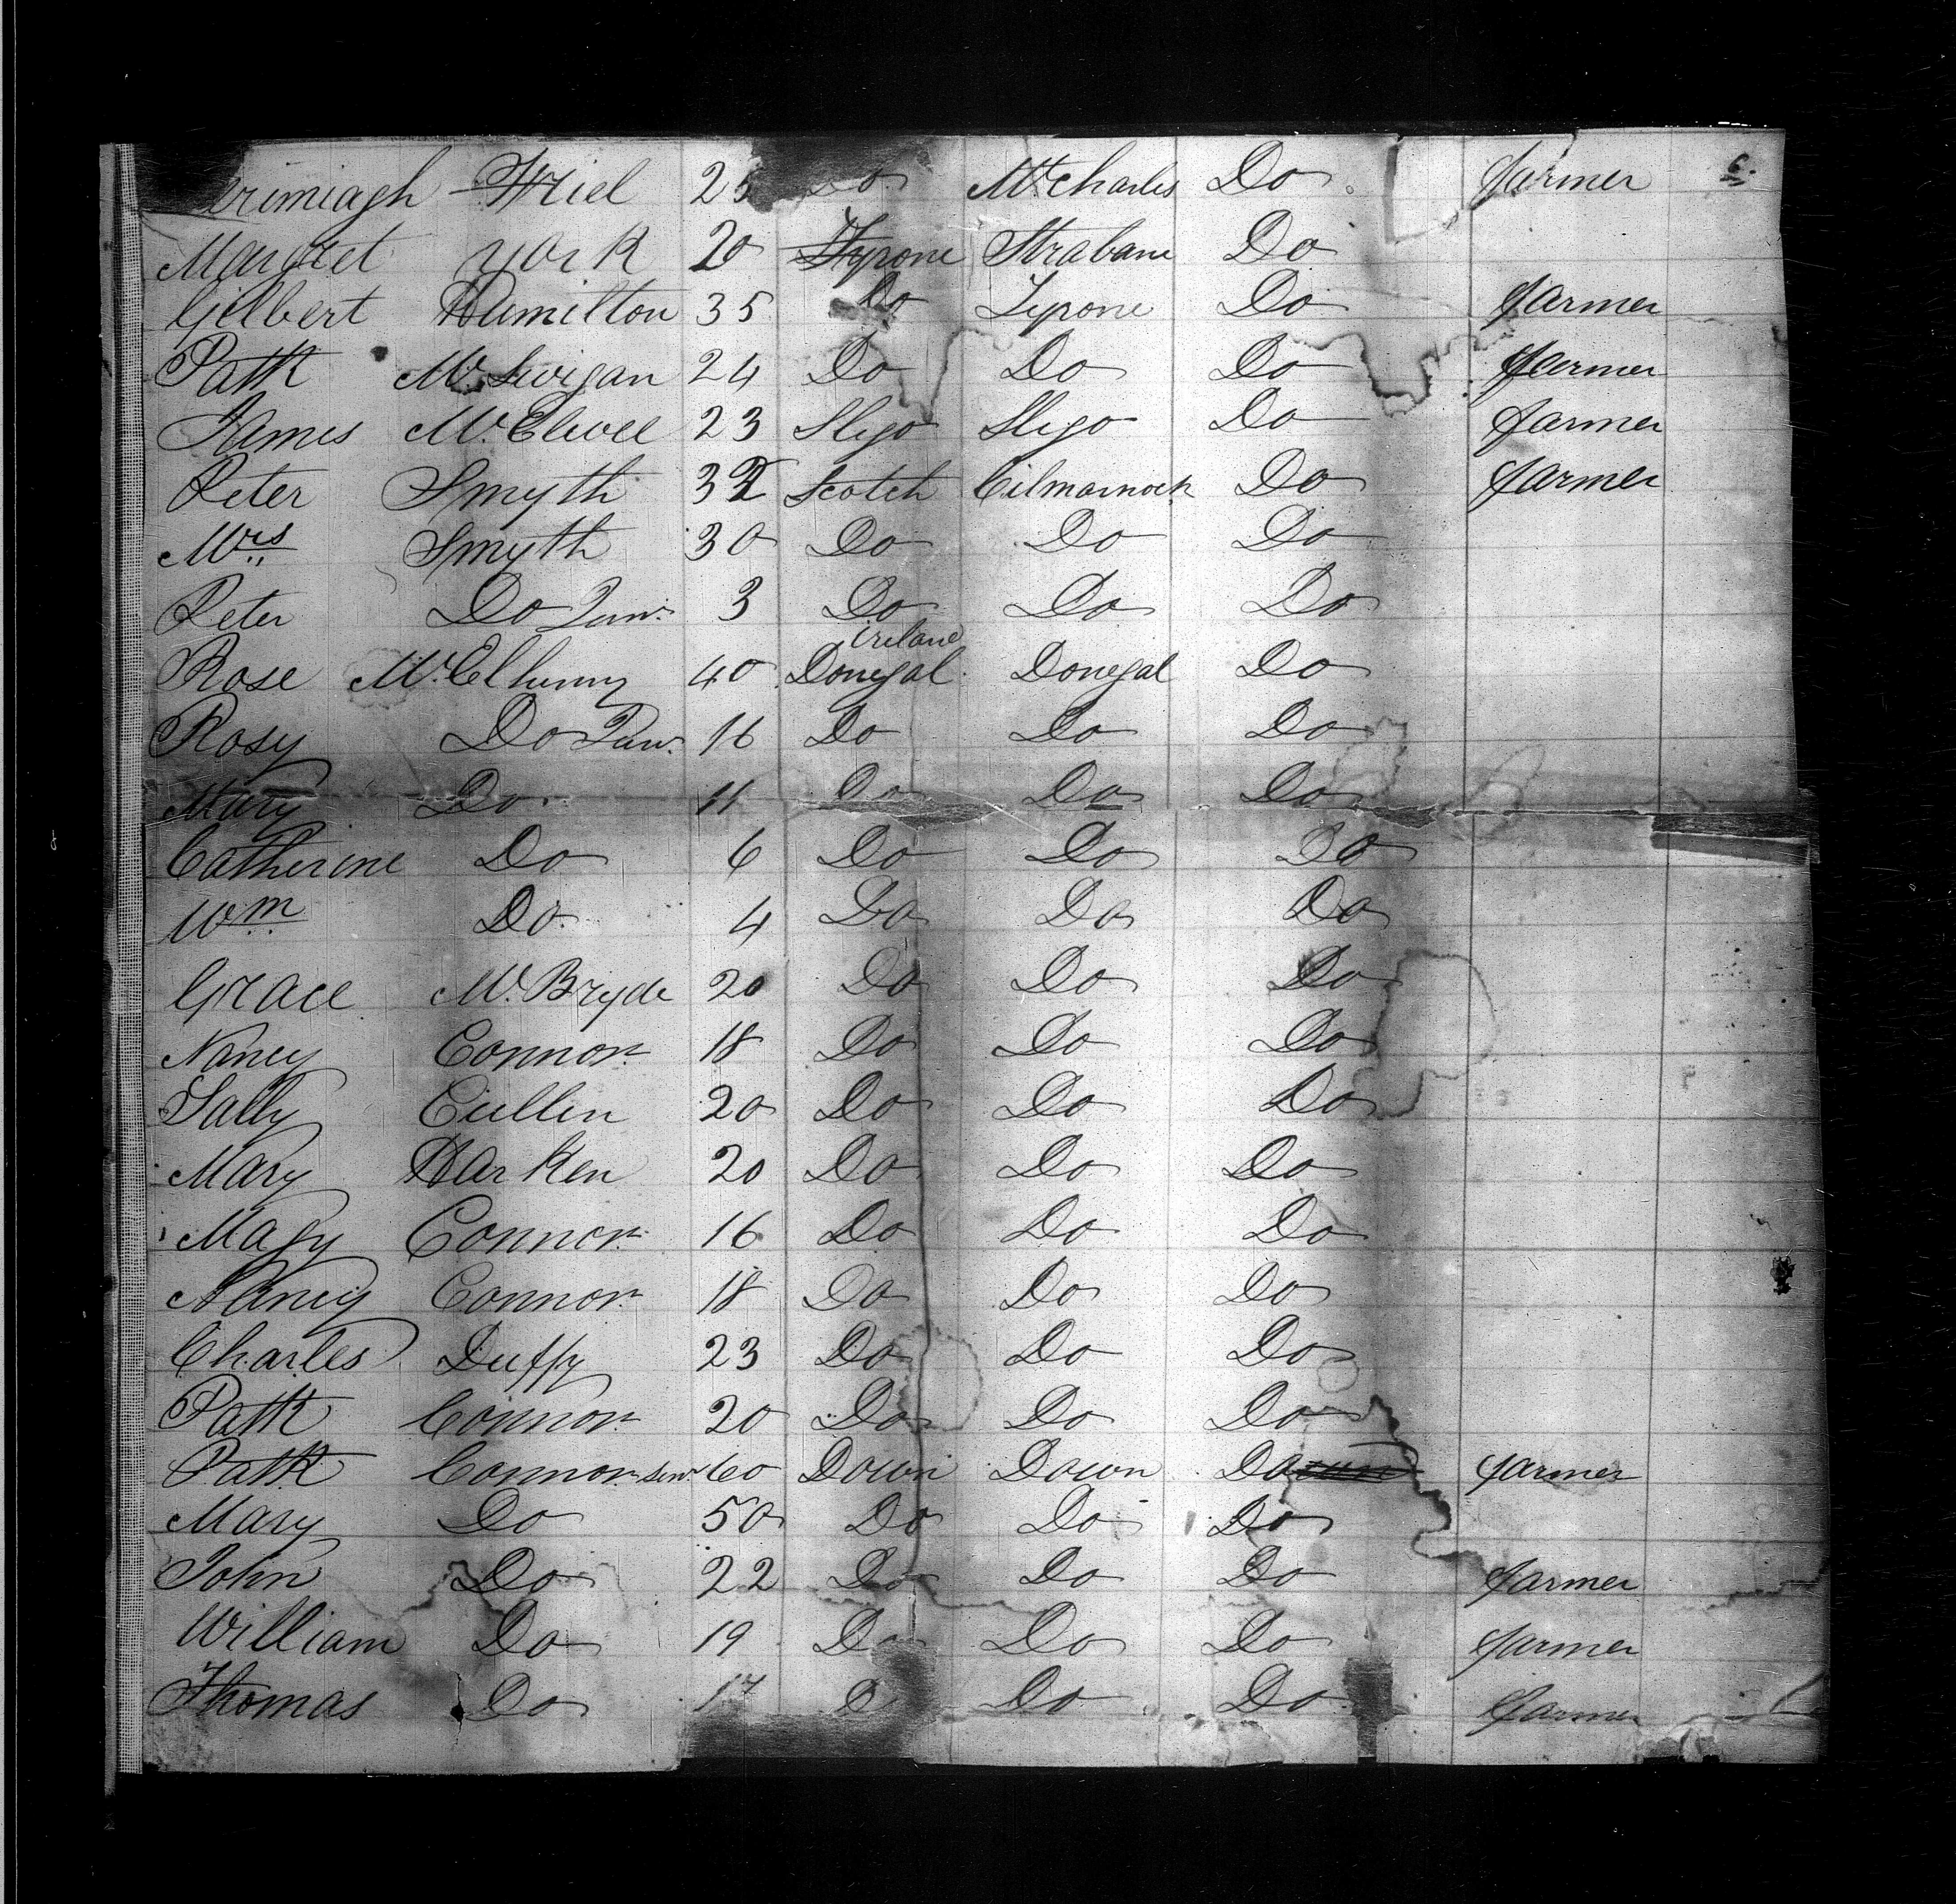 erimiagh Friel 25 Do Mt Charles Do farmer 6.
Margret York 20 Tyrone Strabane Do
Gilbert Hamilton 35 Do Tyrone Do farmer
Patk McSwigan 24 Do Do Do farmer
James McElwee 23 Sligo Sligo Do farmer
Peter Smyth 32 Scotch Cilmarnock Do farmer
Mrs Smyth 30 Do Do Do
Peter Do Junr 3 Do Do Do
Ireland
Rose McElhinny 40 Donegal Donegal Do
Rosy Do Junr 16 Do Do Do
Mary Do 11 Do Do Do
Catherine Do 6 Do Do Do
Wm Do 4 Do Do Do
Grace McBryde 20 Do Do Do
Nancy Connor 18 Do Do Do
Sally Cullen 20 Do Do Do
Mary Harken 20 Do Do Do
Magy Connor 16 Do Do Do
Nancy Connor 18 Do Do Do
Charles Duffy 23 Do Do Do
Patk Connor 20 Do Do Do
Patk Connor Senr 60 Down Down Do farmer
Mary Do 50 Do Do Do
John Do 22 Do Do Do farmer
William Do 19 Do Do Do farmer
Thomas Do 17 D Do Do farmer